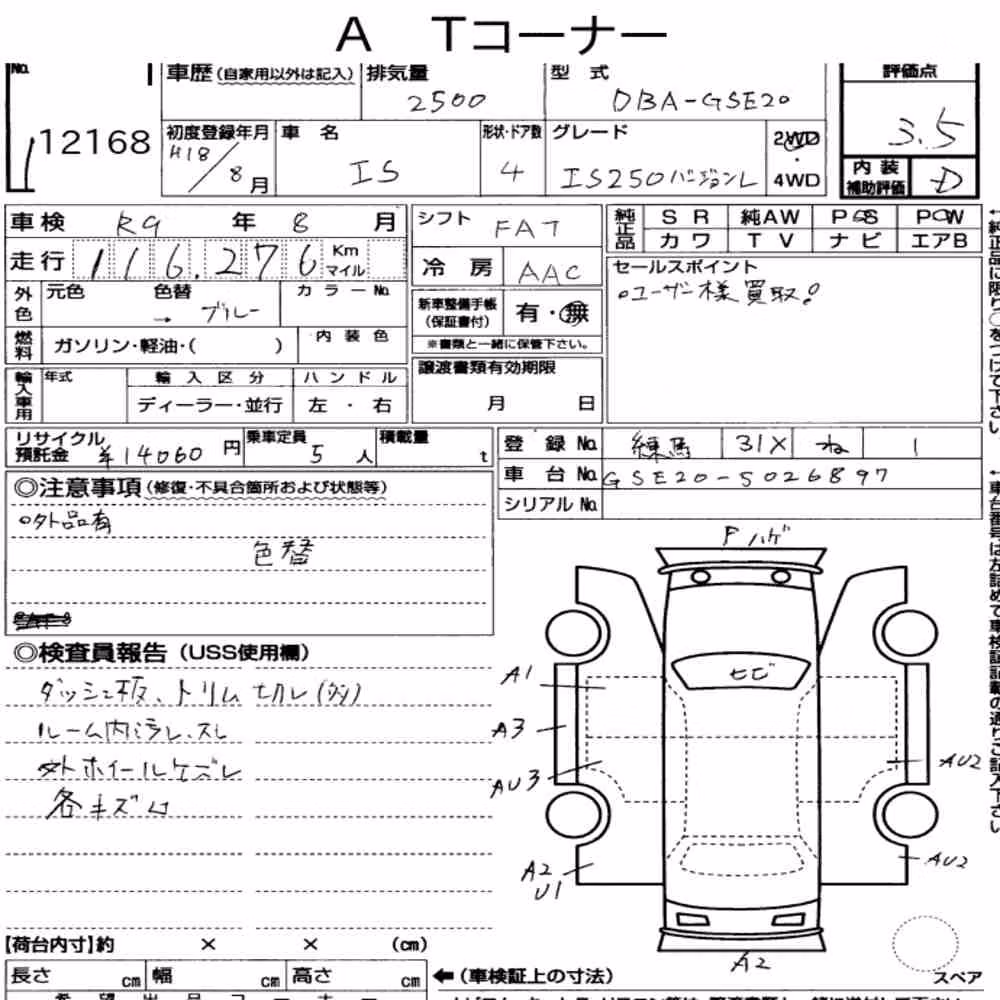 A Tコーナー
No. 車歴(自家用以外は記入) 排気量 型式 評価点
12168 2500 DBA-GSE20 3.5
初度登録年月 車名 形状・ドア数 グレード 2WD・4WD
H18/8月 IS 4 IS250バージョンL 内装補助評価 D
車検 R9年8月 シフト FAT 純正品 SR 純AW PS PW
カワ TV ナビ エアB
走行 116.276 Km マイル 冷房 AAC セールスポイント
。ユーザー様買取!
外色 元色 色替 → ブルー カラーNo. 新車整備手帳(保証書付) 有・無
燃料 ガソリン・軽油・( ) 内装色 ※書類と一緒に保管下さい。
輸入車用 年式 輸入区分 ハンドル 譲渡書類有効期限
ディーラー・並行 左・右 月 日
リサイクル預託金 ¥14060円 乗車定員 5人 積載量 t 登録No. 練馬 31X ね 1
車台No. GSE20-5026897
シリアルNo.
◎注意事項(修復・不具合箇所および状態等)
。外品有
色替
◎検査員報告(USS使用欄)
ダッシュ板、トリム切レ(多々)
ルーム内汚レ、スレ
外ホイールケズレ
各キズ凹
Fハゲ
ヒビ
A1
A3
AU3
A2
U1
AU2
AU2
A2
スペア
【荷台内寸】約 × × (cm)
長さ cm 幅 cm 高さ cm ←(車検証上の寸法)